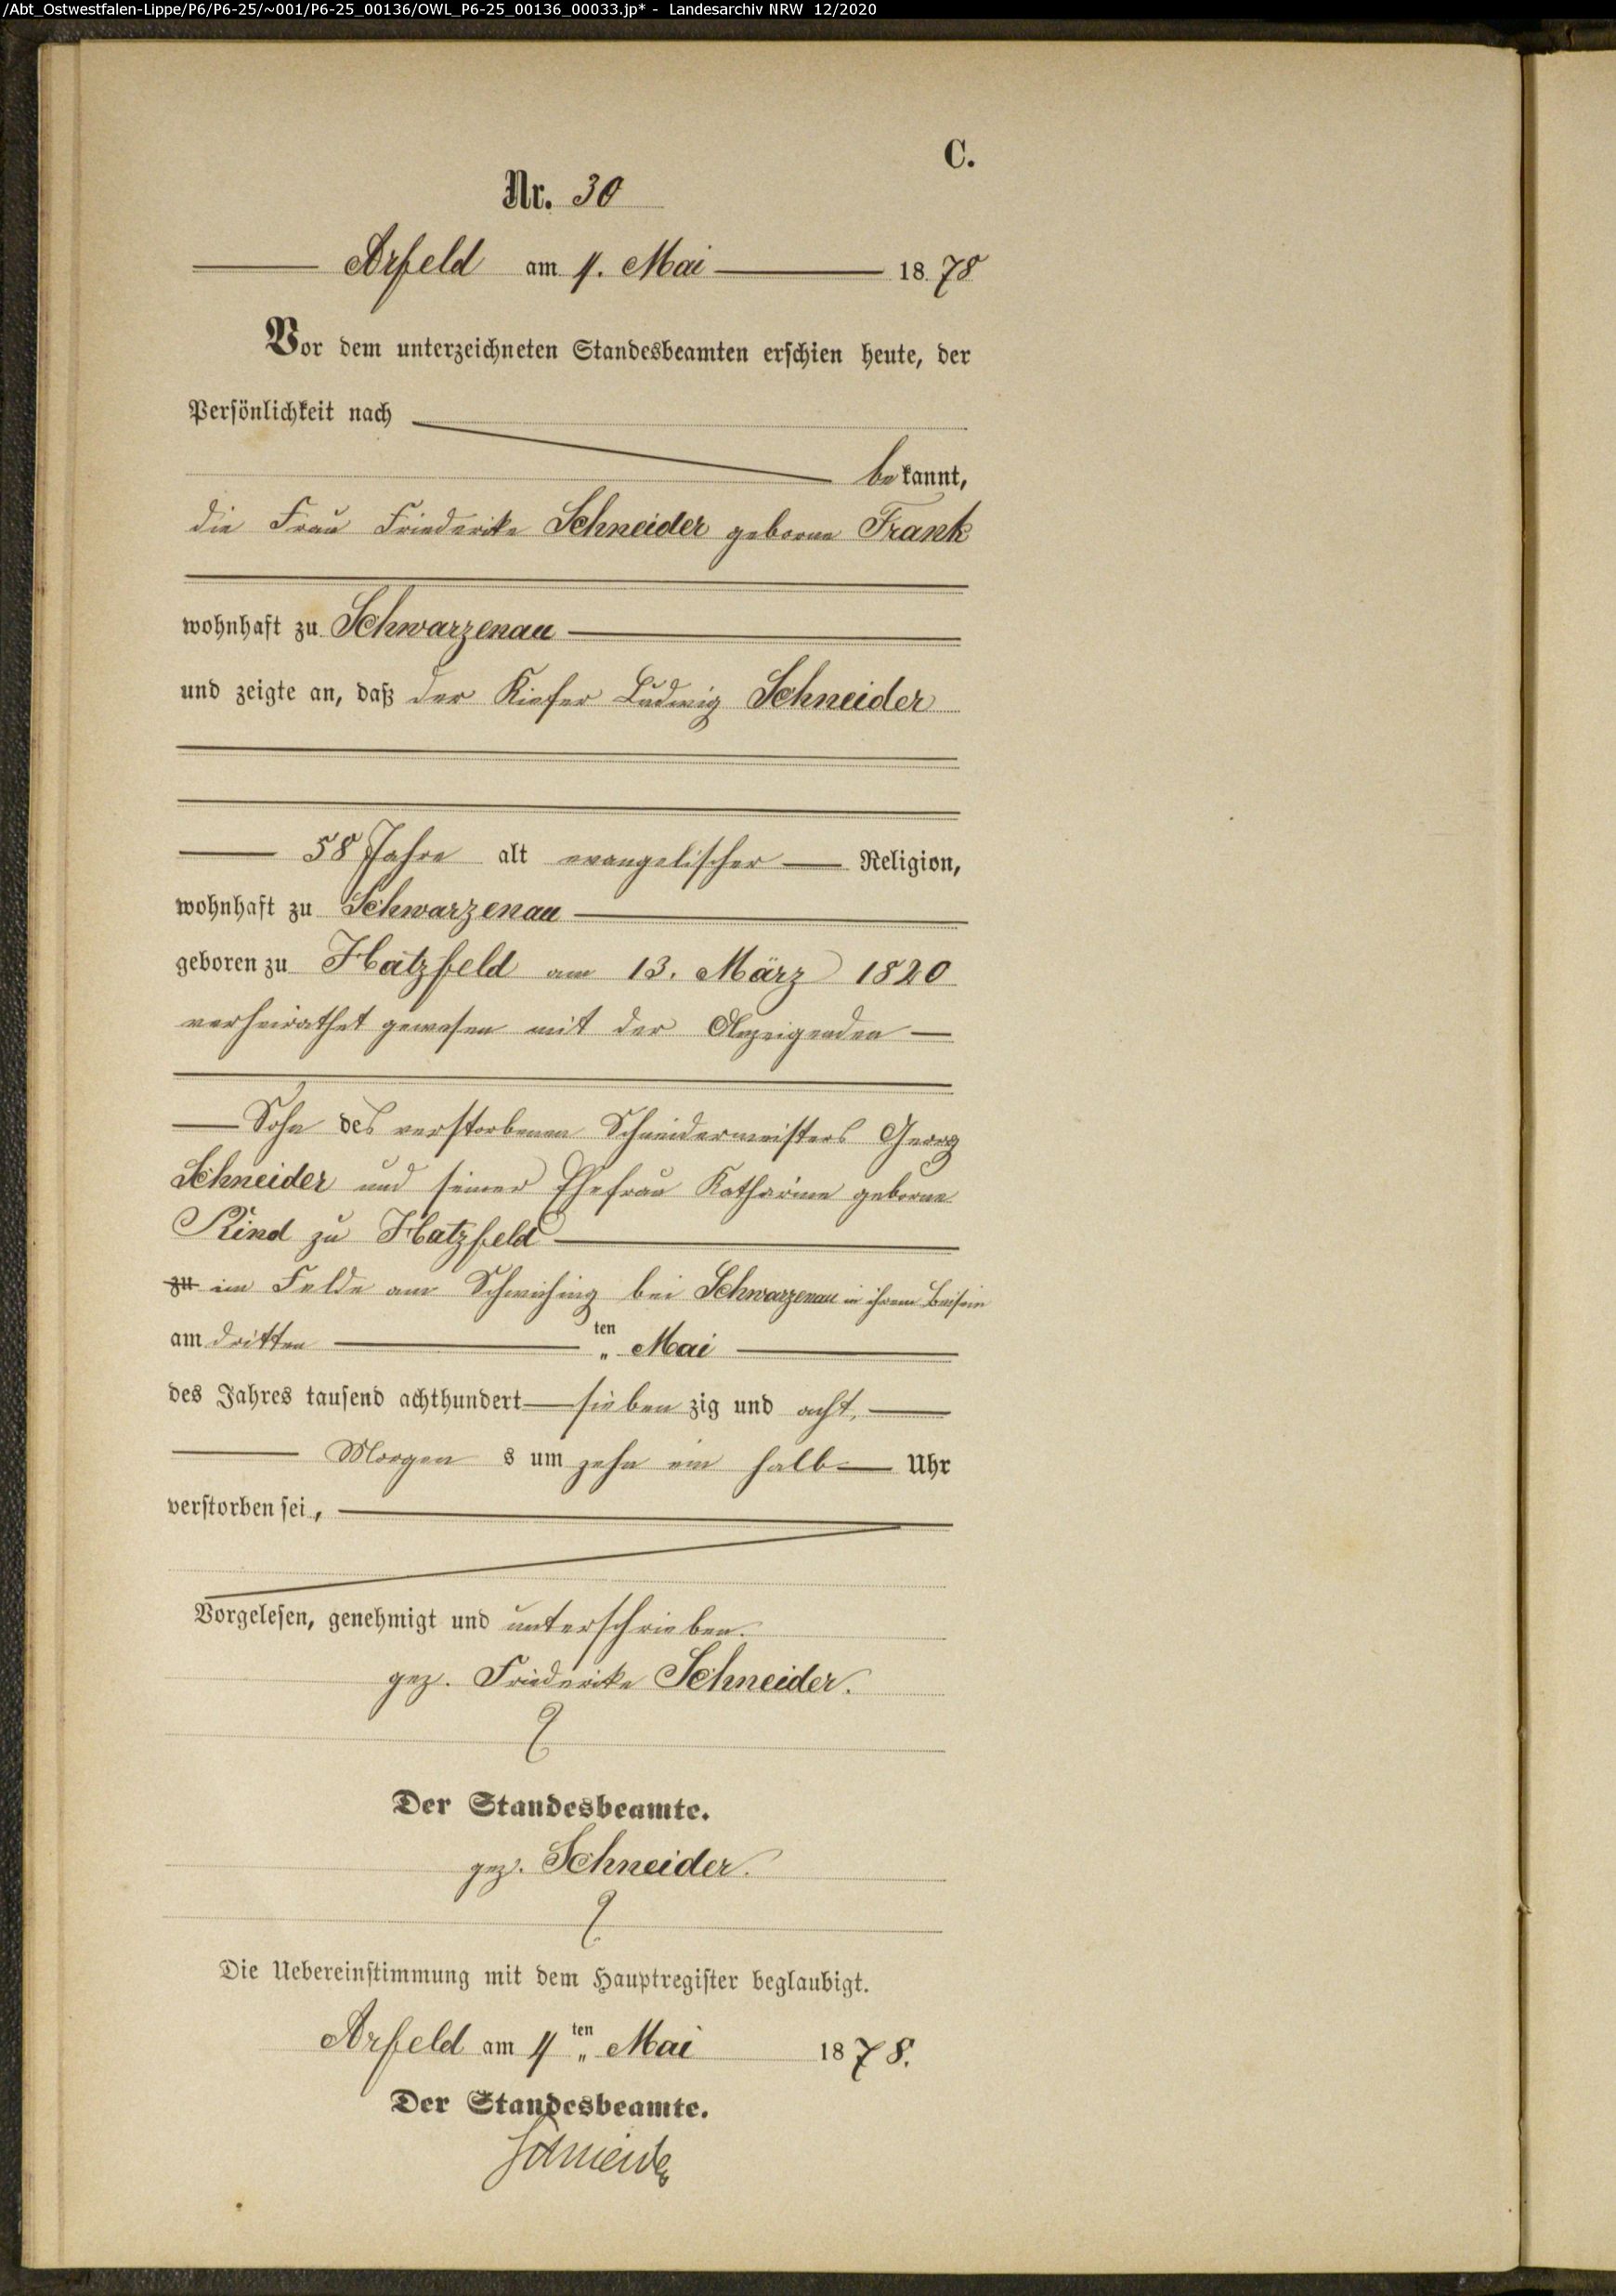 /Abt_Ostwestfalen-Lippe/P6/P6-25/~001/P6-25_00136/OWL_P6-25_00136_00033.jp* - Landesarchiv NRW 12/2020
C.
Nr. 30
Arfeld am 4. Mai 1878
Vor dem unterzeichneten Standesbeamten erschien heute, der
Persönlichkeit nach
bekannt,
die Frau Friederike Schneider geborne Frank
wohnhaft zu Schwarzenau
und zeigte an, daß der Ludwig Schneider
58 Jahre alt evangelischer Religion,
wohnhaft zu Schwarzenau
geboren zu Hatzfeld am 13. März 1820
verheirathet gewesen mit der Anzeigenden
Sohn des verstorbenen Schneidermeisters Georg
Schneider und seiner Ehefrau Katharine geborne
zu Hatzfeld
zu im Felde am bei Schwarzenau in ihrem Beisein
am dritten ten „ Mai
des Jahres tausend achthundert sieben zig und acht,
Morgen s um zehn ein halb Uhr
verstorben sei,
Vorgelesen, genehmigt und unterschrieben.
gez. Friederike Schneider.
Der Standesbeamte.
gez. Schneider.
Die Uebereinstimmung mit dem Hauptregister beglaubigt.
Arfeld am 4 ten „ Mai 1878.
Der Standesbeamte.
Schneider